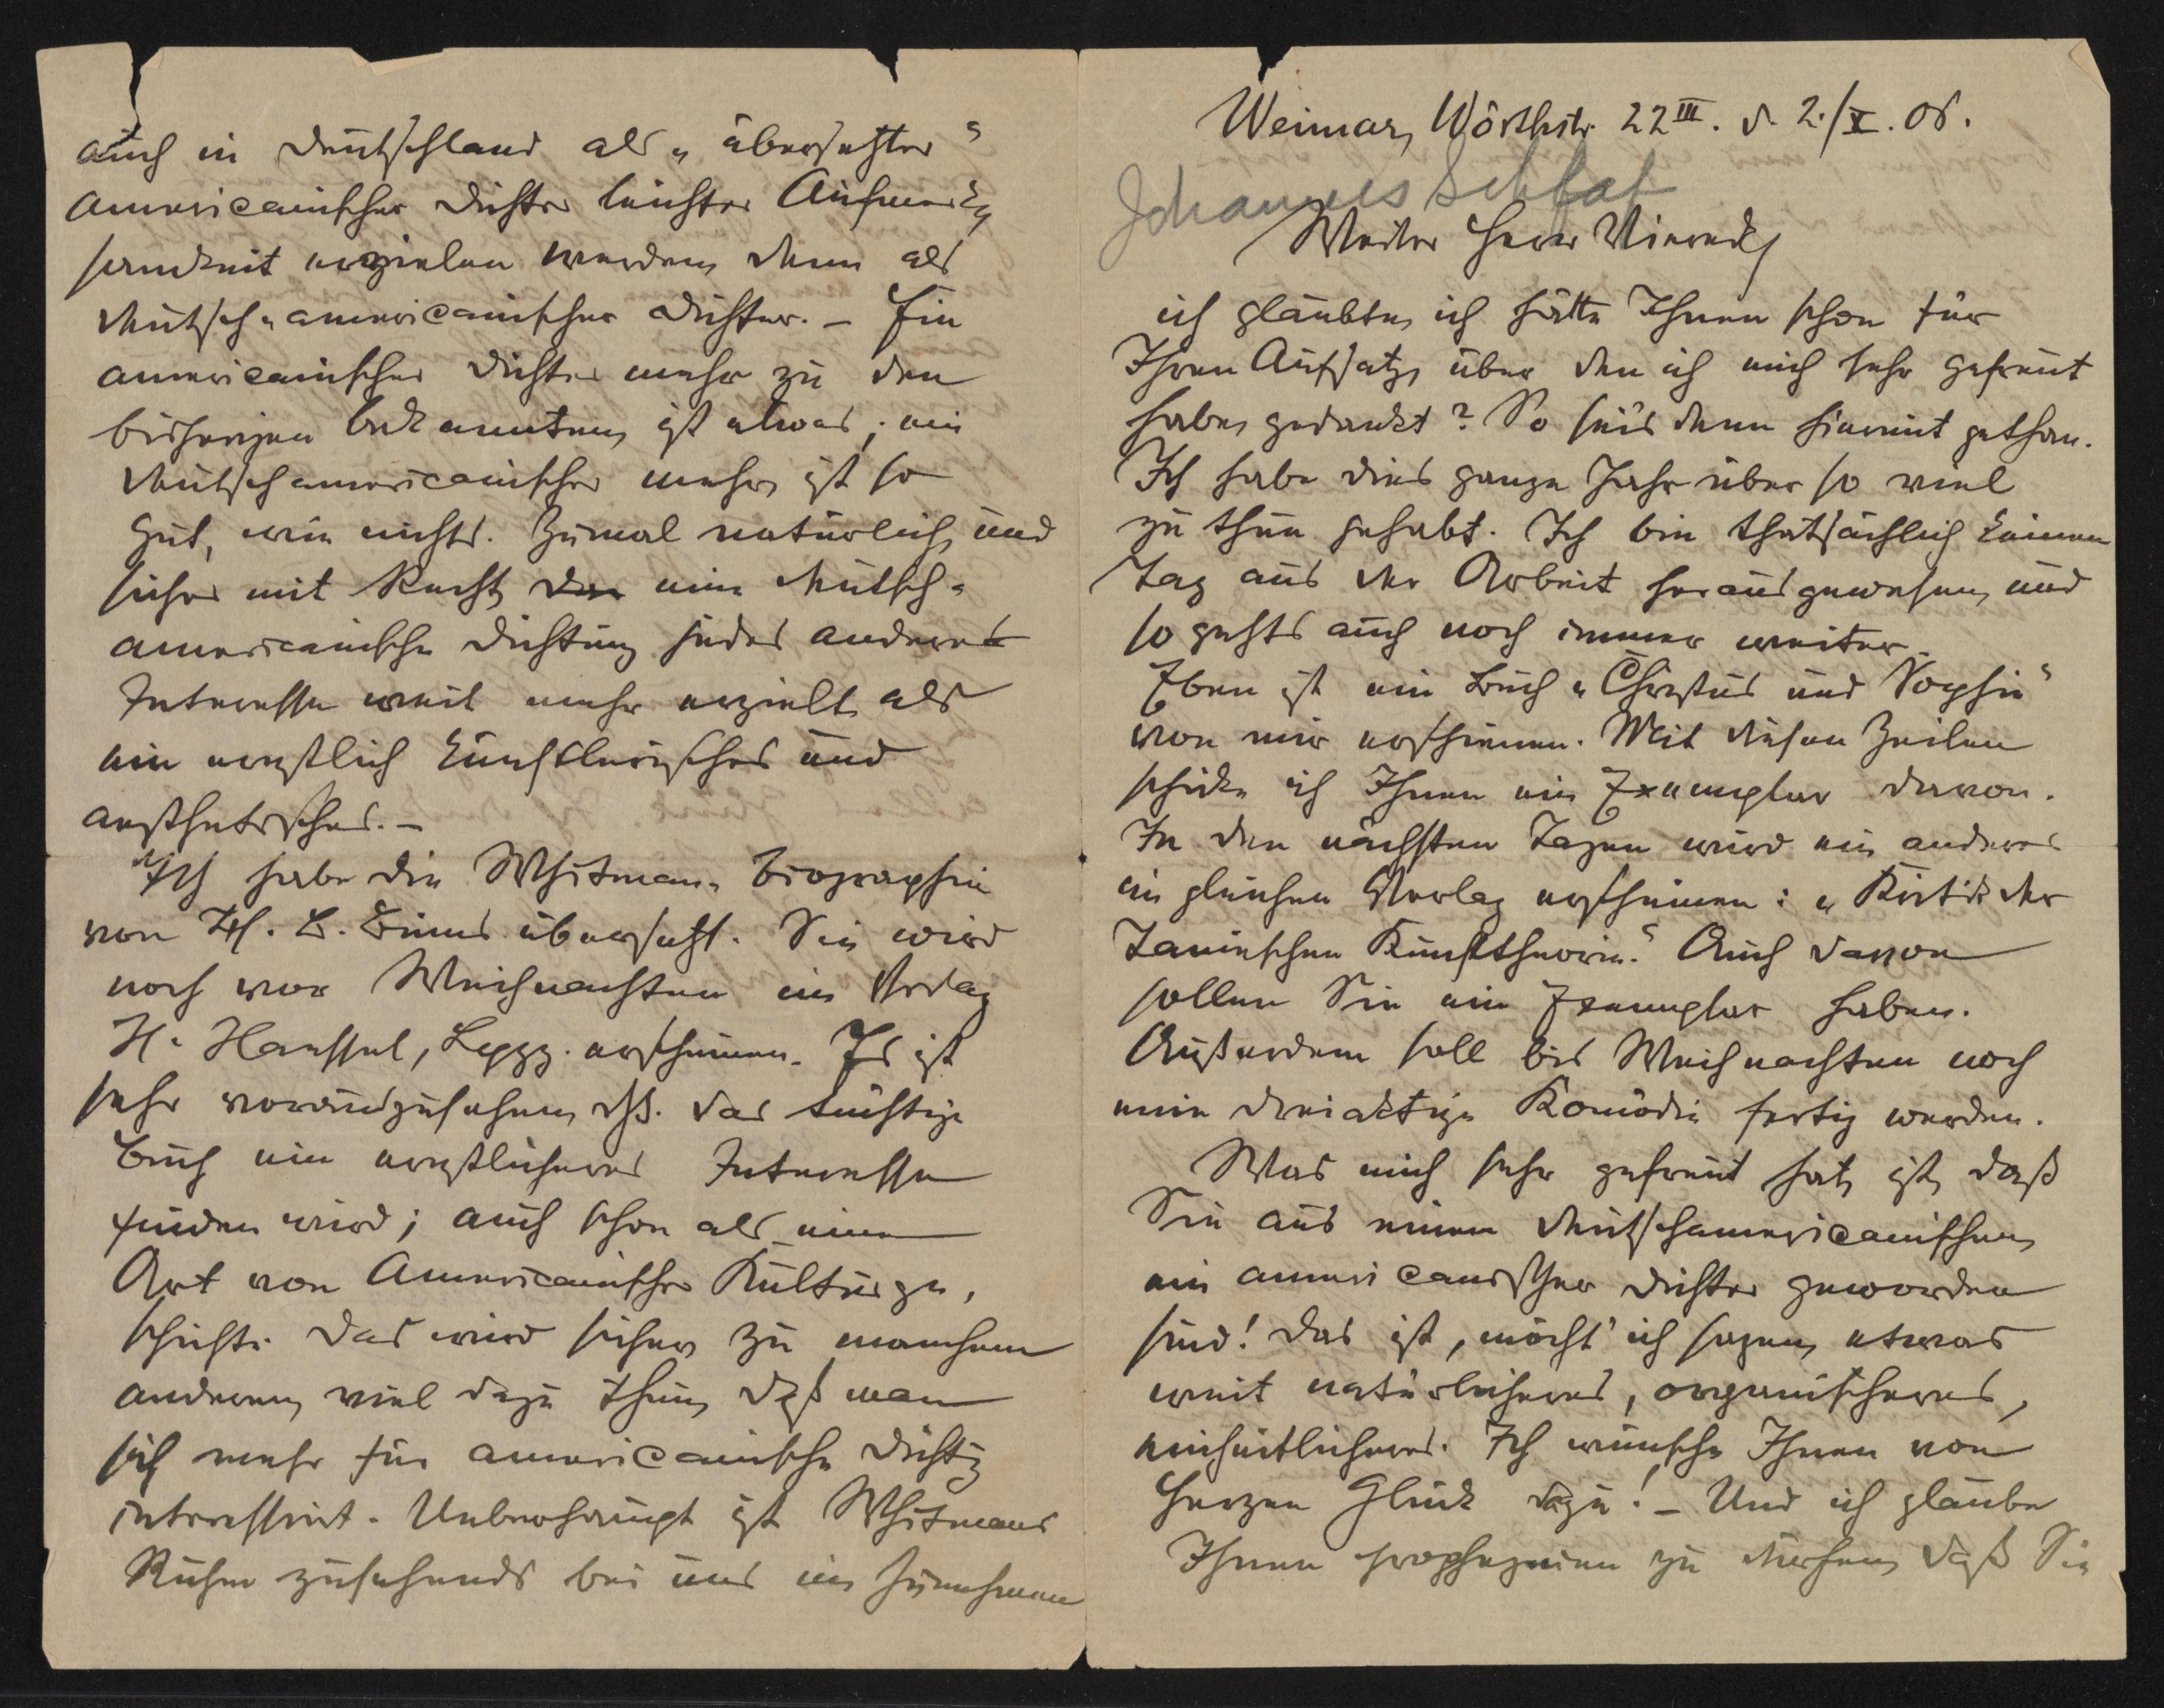 Weimar, Wörthstr. 22III. d. 2./X. 06.
Johannes Schlaf
Werter Herr Viereck,
ich glaubte, ich hätte Ihnen schon für
Ihren Aufsatz, über den ich mich sehr gefreut
habe, gedankt? So sei's denn hiermit gethan.
Ich habe dies ganze Jahr über so viel
zu thun gehabt. Ich bin thatsächlich keinen
Tag aus der Arbeit herausgewesen, und
so gehts auch noch immer weiter.
Eben ist ein Buch „Christus und Sophie“
von mir erschienen. Mit diesen Zeilen
schicke ich Ihnen ein Exemplar davon.
In den nächsten Tagen wird ein anderes
im gleichen Verlag erscheinen: „Kritik der
Taineschen Kunsttheorie.“ Auch davon
sollen Sie ein Exemplar haben.
Außerdem soll bis Weihnachten noch
eine dreiaktige Komödie fertig werden.
Was mich sehr gefreut hat, ist, daß
Sie aus einem deutschamericanischen
ein americanischer Dichter geworden
sind! Das ist, möcht' ich sagen, etwas
weit natürlicheres, organischeres,
einheitlicheres. Ich wünsche Ihnen von
Herzen Glück dazu! – Und ich glaube
Ihnen prophezeien zu dürfen, daß Sie
auch in Deutschland als „übersetzter“
americanischer Dichter leichter Aufmerk-
samkeit erzielen werden, denn als
deutsch-americanischer Dichter. – Ein
americanischer Dichter mehr zu den
bisherigen bekannten, ist etwas; ein
deutschamericanischer mehr, ist so
gut, wie nichts. Zumal natürlich, und
sicher mit Recht, eine deutsch-
americanische Dichtung jedes andere
Interesse weit mehr erzielt, als
ein ernstlich künstlerisches und
aesthetisches. –
Ich habe die Whitman-Biographie
von H. B. Binns übersetzt. Sie wird
noch vor Weihnachten im Verlag
H. Haessel, Lpzg. erscheinen. Es ist
sehr vorauszusehen, dß. das tüchtige
Buch ein ernstlicheres Interesse
finden wird; auch schon als eine
Art von Americanischer Kulturge-
schichte. Das wird sicher, zu manchem
anderen, viel dazu thun, daß man
sich mehr für americanische Dichtg
interessirt. Ueberhaupt ist Whitmans
Ruhm zusehends bei uns im Zunehmen